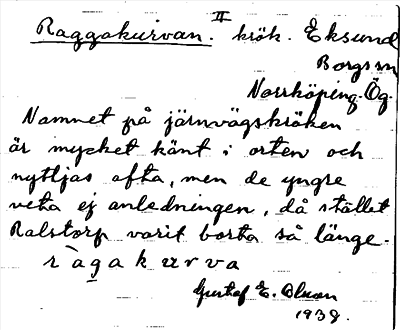 II
Raggakurvan. krök. Eksund
Borgs sn
Norrköping. Ög.
Namnet på järnvägskröken
är mycket känt i orten och
nyttjas ofta, men de yngre
veta ej anledningen, då stället
Ralstorp varit borta så länge.
ràgakurva
Gustaf E. Olsson
1938.